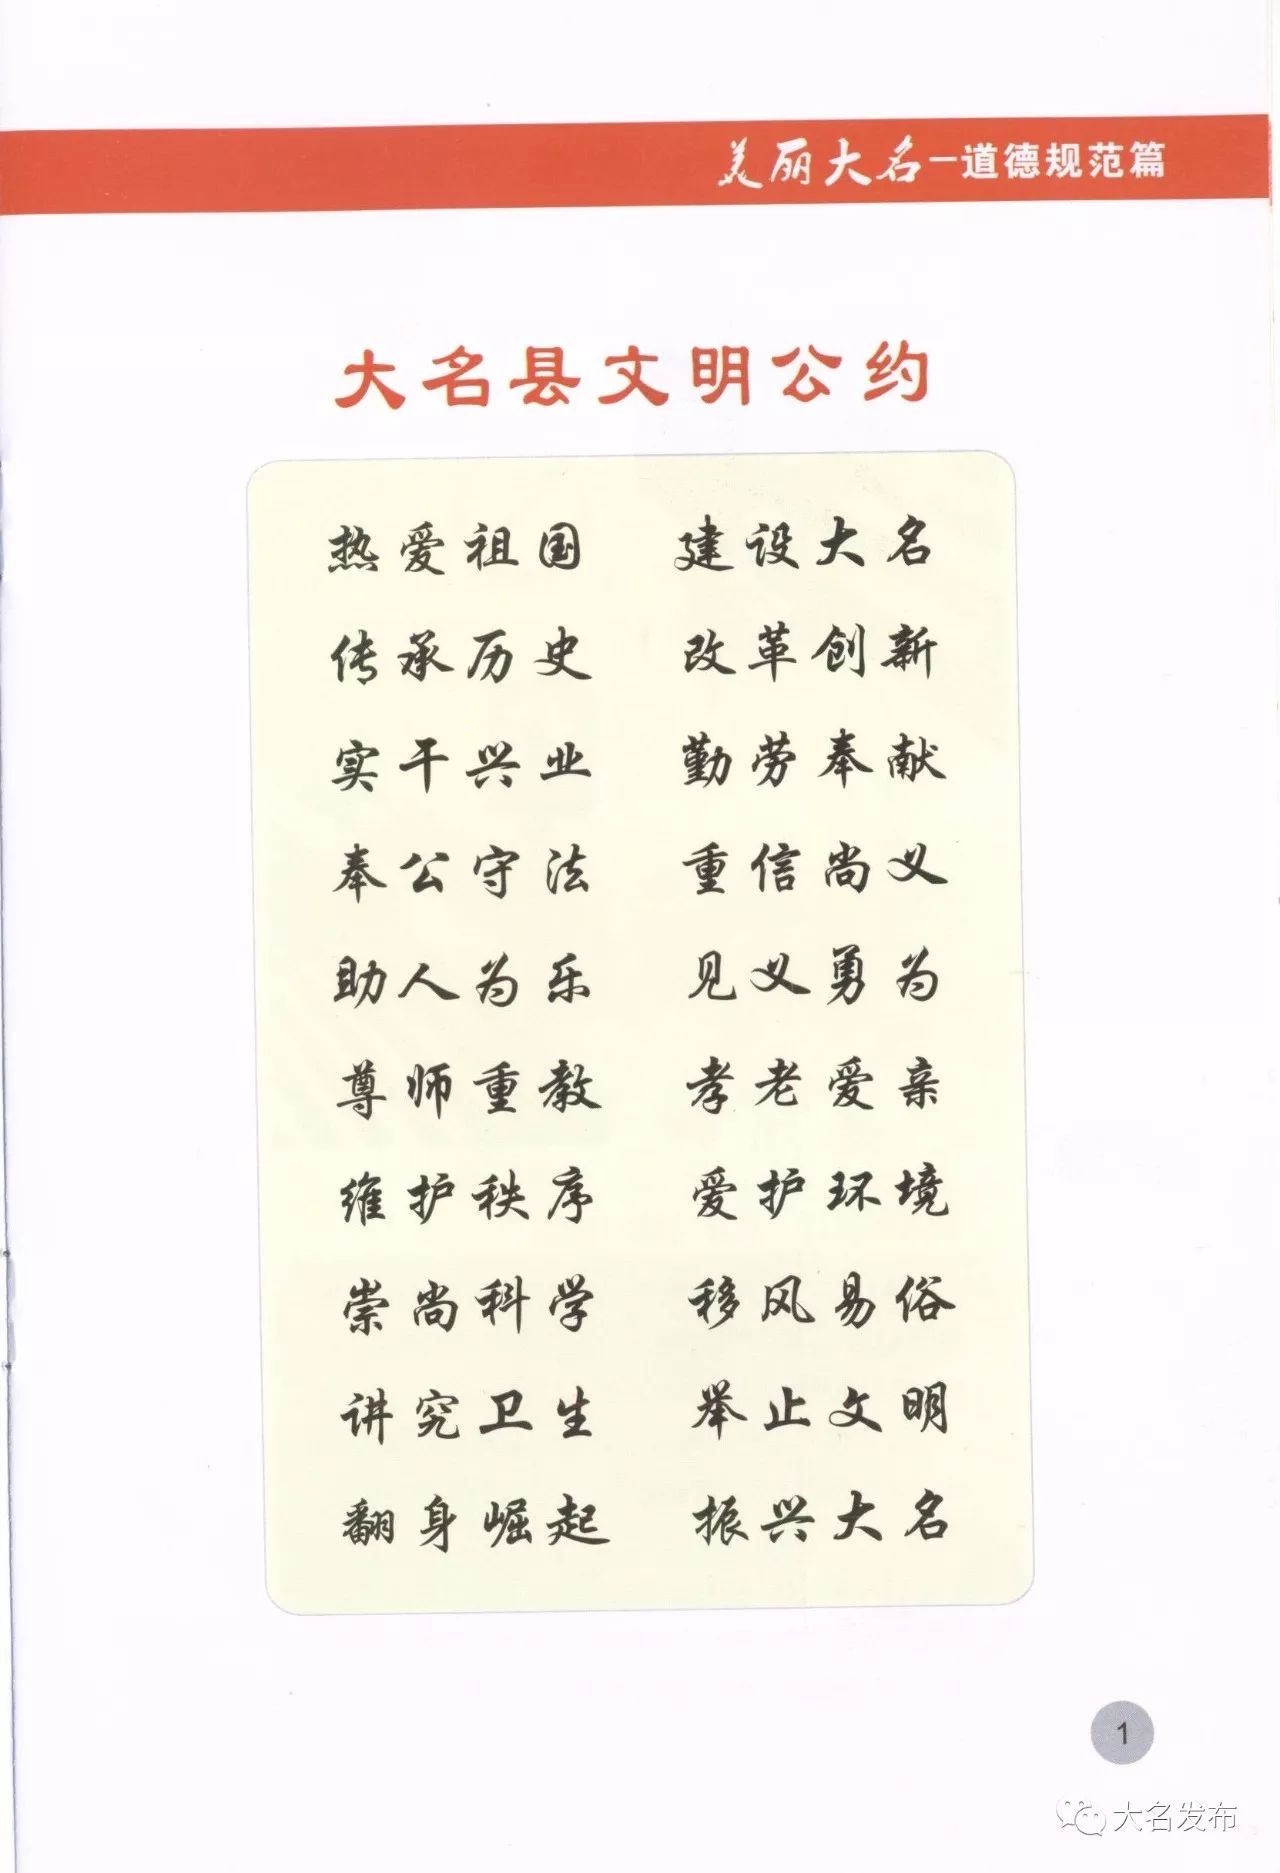 美丽大名—道德规范篇
大名县文明公约
热爱祖国 建设大名
传承历史 改革创新
实干兴业 勤劳奉献
奉公守法 重信尚义
助人为乐 见义勇为
尊师重教 孝老爱亲
维护秩序 爱护环境
崇尚科学 移风易俗
讲究卫生 举止文明
翻身崛起 振兴大名
1
大名发布